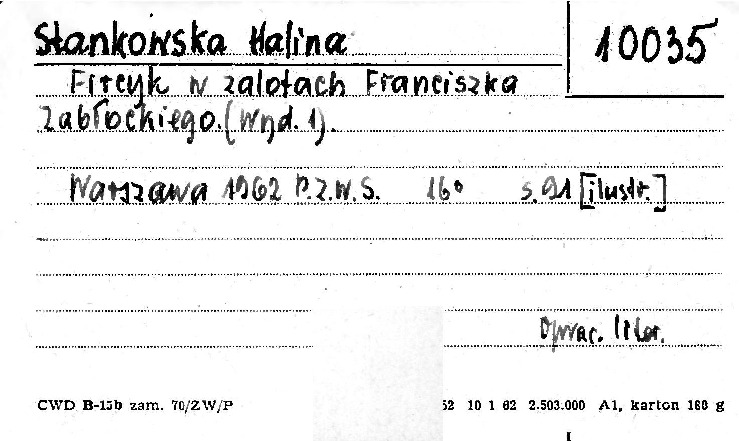 Stankowska Halina 10035
Fircyk w zalotach Franciszka
Zabłockiego. (Wyd. 1).
Warszawa 1962 P.Z.W.S. 16° s. 91 [ilustr.]
Oprac. liter.
CWD B-15b zam. 70/ZW/P 52 10 1 62 2.503.000 A1, karton 160 g